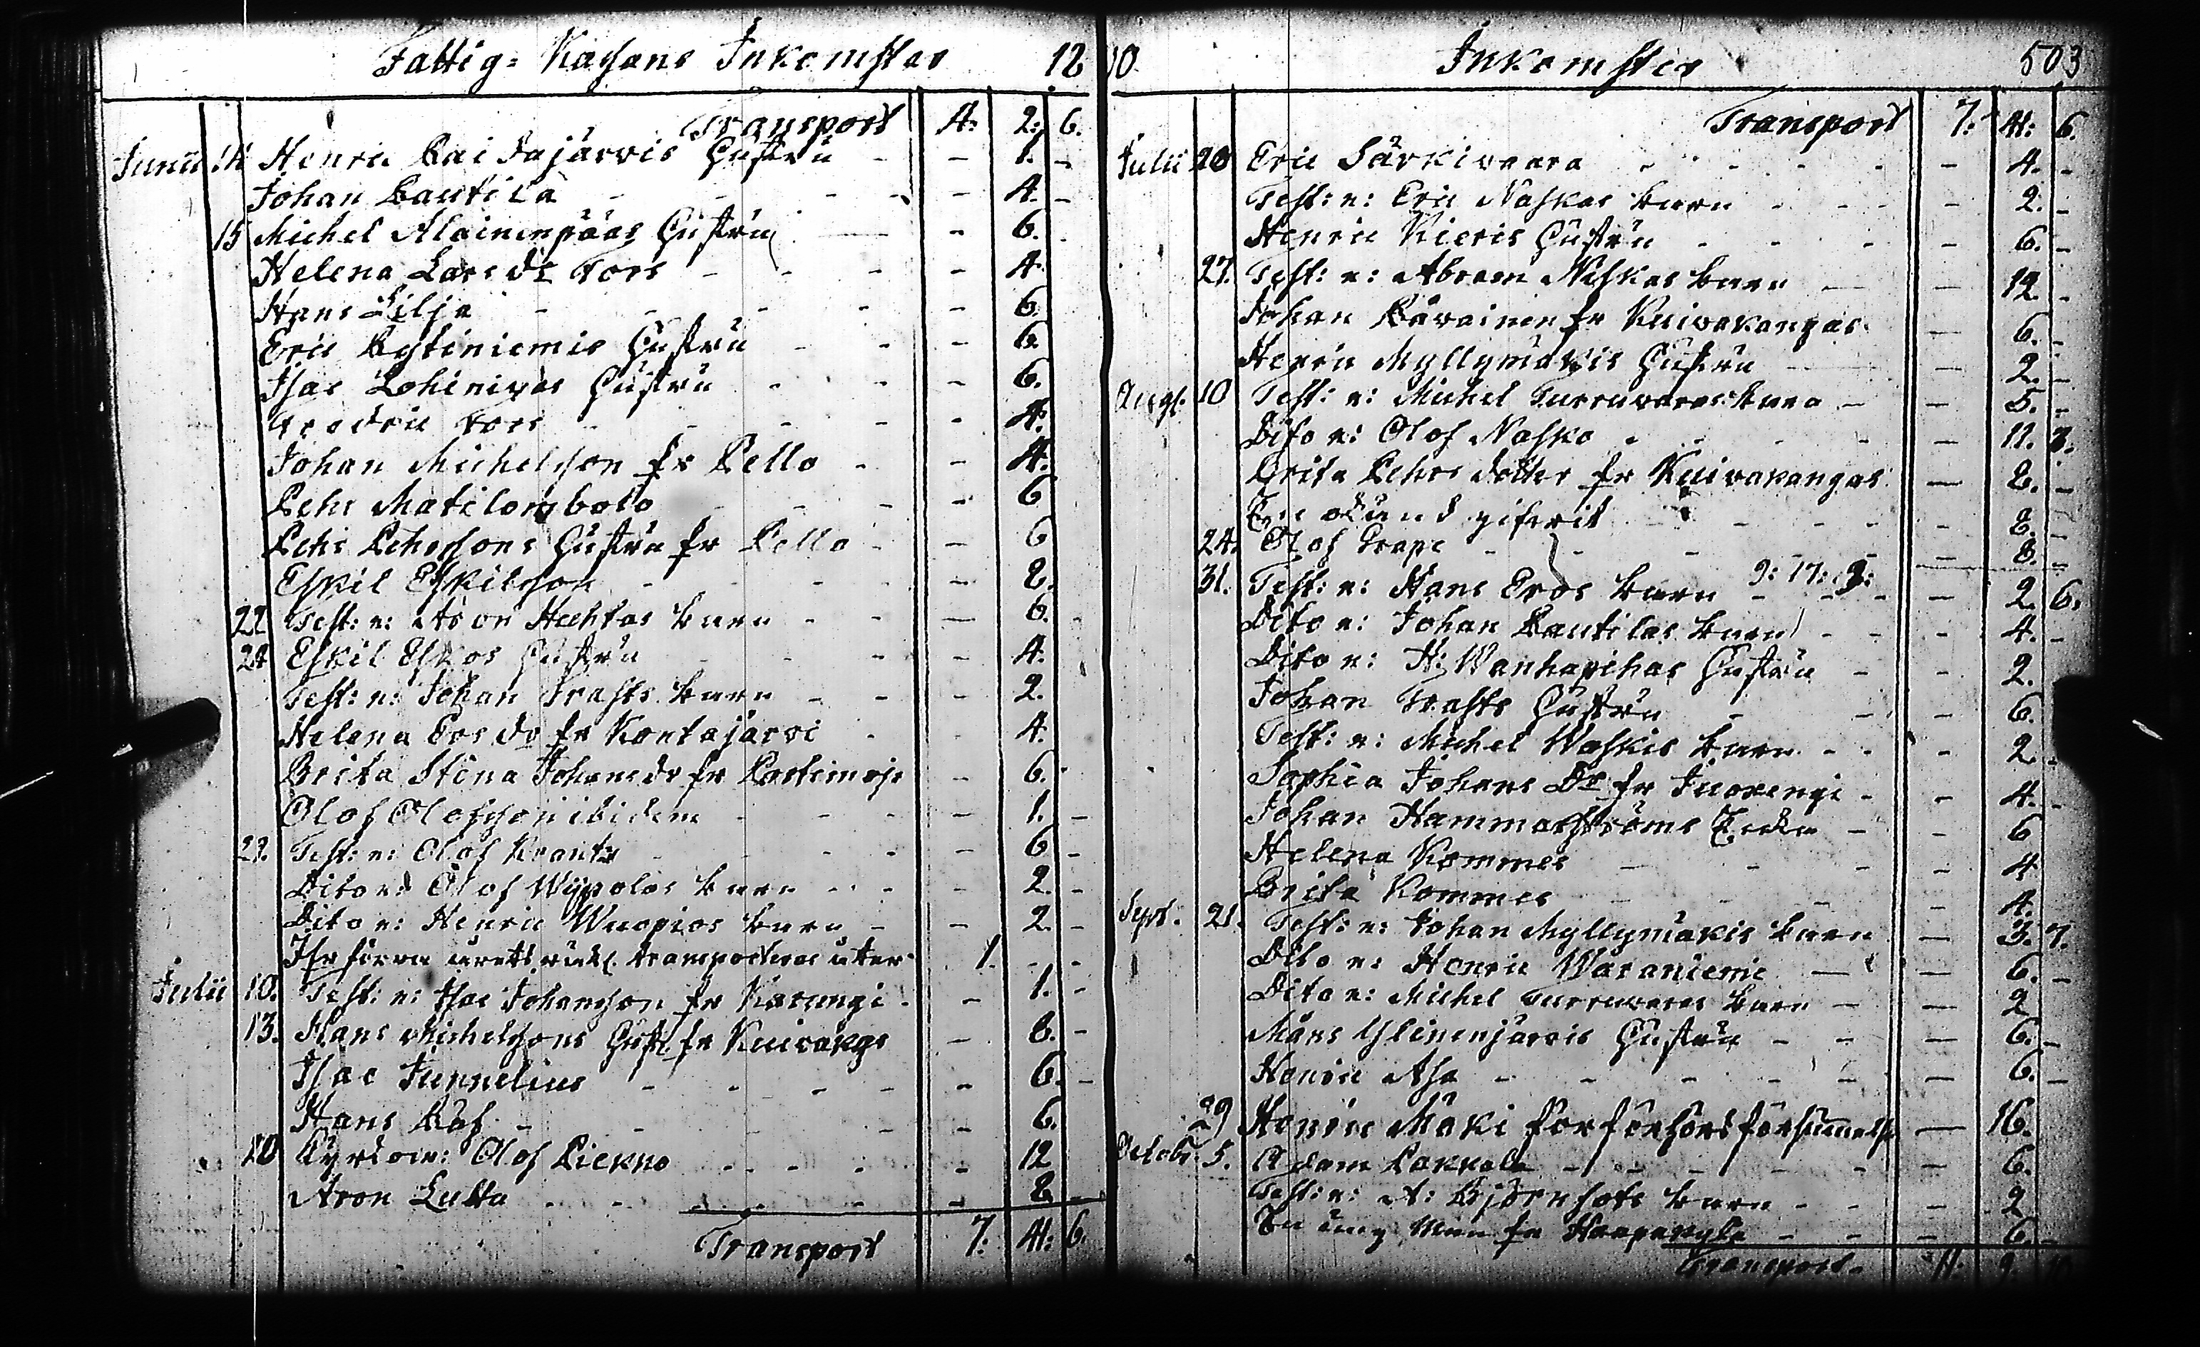 Fattig-Kassans Inkomster 18
Transport 4: 2: 6.
Junii 14 Henric Raidajärvis Hustru - - 1. -
Johan Rautila - - 4. -
15 Michel Alainenpääs Hustru - 6.
Helena Lars dr Fors - - 4.
Hans Lilja - - 6.
Eric Kytiniemis Hustru - - 6.
Isac Lohinivas Hustru - - 6.
Fredric Fors - - 4.
Johan Michelsson fr Pello - - 4.
Pehr Matilompolo - - 6
Pehr Pehrssons Hustru fr Pello - 6
Eskil Eskilsson - - 2.
22 Test: n: Aron Huhtas barn - - 6.
24 Eskil Eskos Hustru - - 4.
Test: n: Johan Trasts barn - - 2.
Helena Ers dr fr Kontajärvi - 4.
Brita Stina Johans dr fr - 6.
Olof Olofsson ibidem - - 1. -
29. Test: n: Olof Krantz - - 6 -
Dito n: Olof Wypolos barn - - 2. -
Dito n: Henric Wuopios barn - - 2. -
förra transporteras åter 1. - -
Julii 10. Test: n: Isac Johansson fr Karungi - - 1. -
13. Hans Michelssons Hust fr Kuivakgs - 6. -
Isac Junnelius - - 6. -
Hans Råf - - 6.
20 Olof Piekno - - 12
Aron Lutta - - 2 -
Transport 7. 41: 6.
10. Inkomster 503
Transport 7: 41: 6.
Julii 20 Eric Särkivaara - - 4. -
Test: n: Eric Naskas barn - - 2. -
Henric Kieris Hustru - - 6. -
27. Test: n: Abram Niskas barn - - 12. -
Johan fr Kuivakangas 6. -
Henric Myllymäkis Hustru - 2. -
Aug. 10 Test: n: Michel Turruvaras barn - - 5. -
Dito n: Olof Nasko - - 11. 3.
Brita Pehrs dotter fr Kuivakangas - 2. -
- - 8. -
24. Olof Grape - - 8. -
31. Test: n: Hans Eros barn - 2. 6.
Dito n: Johan Rautilas barn - - 4. -
Dito n: H: Wanhapihas Hustru - - 2.
Johan Trasts Hustru - - 6.
Test: n: Michel Waskis barn - - 2.
Sophia Johans Dr fr Juoxengi - - 4. -
Johan Hammarströms - - 6
Helena Kommes - - 4
Brita Kommes - - 4.
Sept. 21. Test: n: Johan Myllymäkis barn - 3. 7.
Dito n: Henric Waraniemi - - 6. -
Dito n: Michel Turruvaras barn - - 2
Måns Ylinenjärvis Hustru - - 6. -
Henric Asa - - 6. -
29 Henric Mäki för förhörs försummelse - 16.
Octobr. 5. Adam Pakkala - - 6.
Test: n: A: Björnfots barn - - 2
En ung Man fr Haapakylä - - 6. -
Transport. 11: 9.